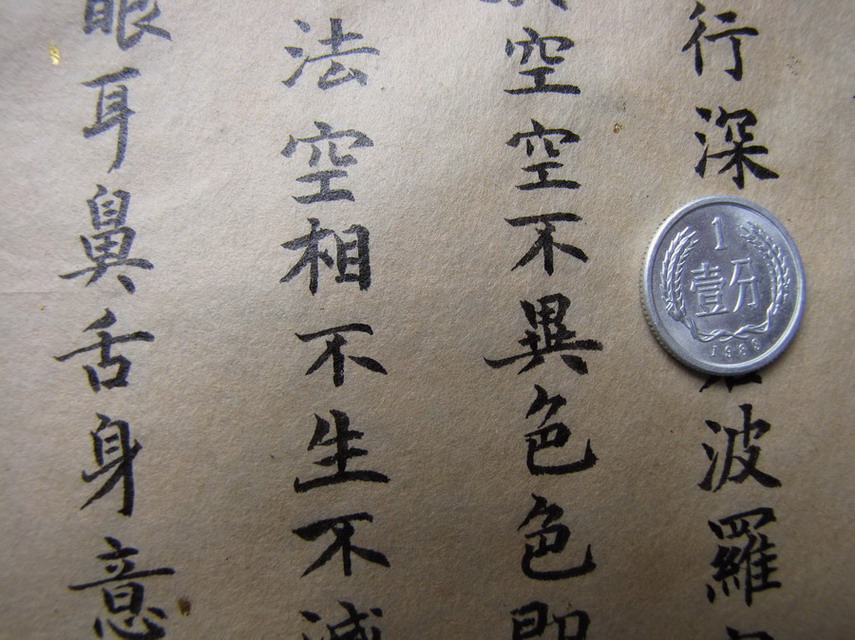 行深
波羅
空空不異色色即
法空相不生不滅
眼耳鼻舌身意
1
壹分